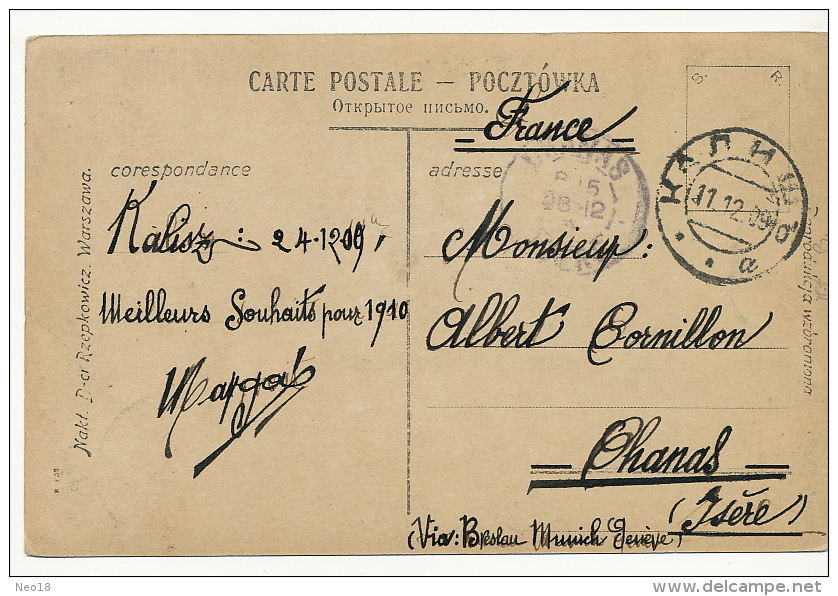 CARTE POSTALE — POCZTÓWKA
Открытое письмо.
S. R.
France
corespondance
adresse
КАЛИШ
11.12.09
a
28 12
Kalisz: 24-1209,
Meilleurs Souhaits pour 1910
Margat
Monsieur:
Albert Cornillon
Chanas
(Isère)
(Via: Breslau Munich Genève)
Nakł. D-ci Rzepkowicz. Warszawa.
Reprodukcja wzbroniona
Neo18
delcampe.net